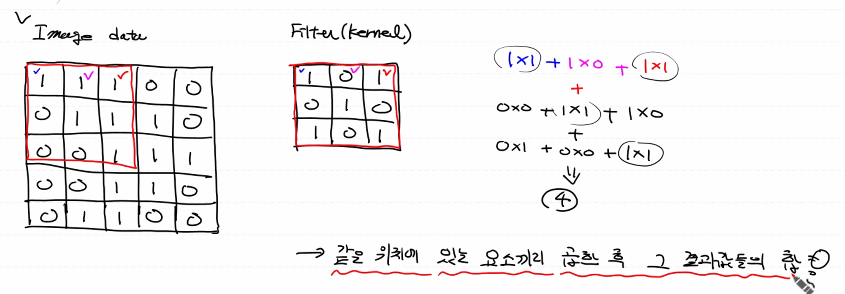 Image data
1 1 1 0 0
0 1 1 1 0
0 0 1 1 1
0 0 1 1 0
0 1 1 0 0
Filter(kernel)
1 0 1
0 1 0
1 0 1
1x1 + 1x0 + 1x1
+
0x0 + 1x1 + 1x0
+
0x1 + 0x0 + 1x1
⇓
4
→ 같은 위치에 있는 요소끼리 곱한 후 그 결과값들의 합